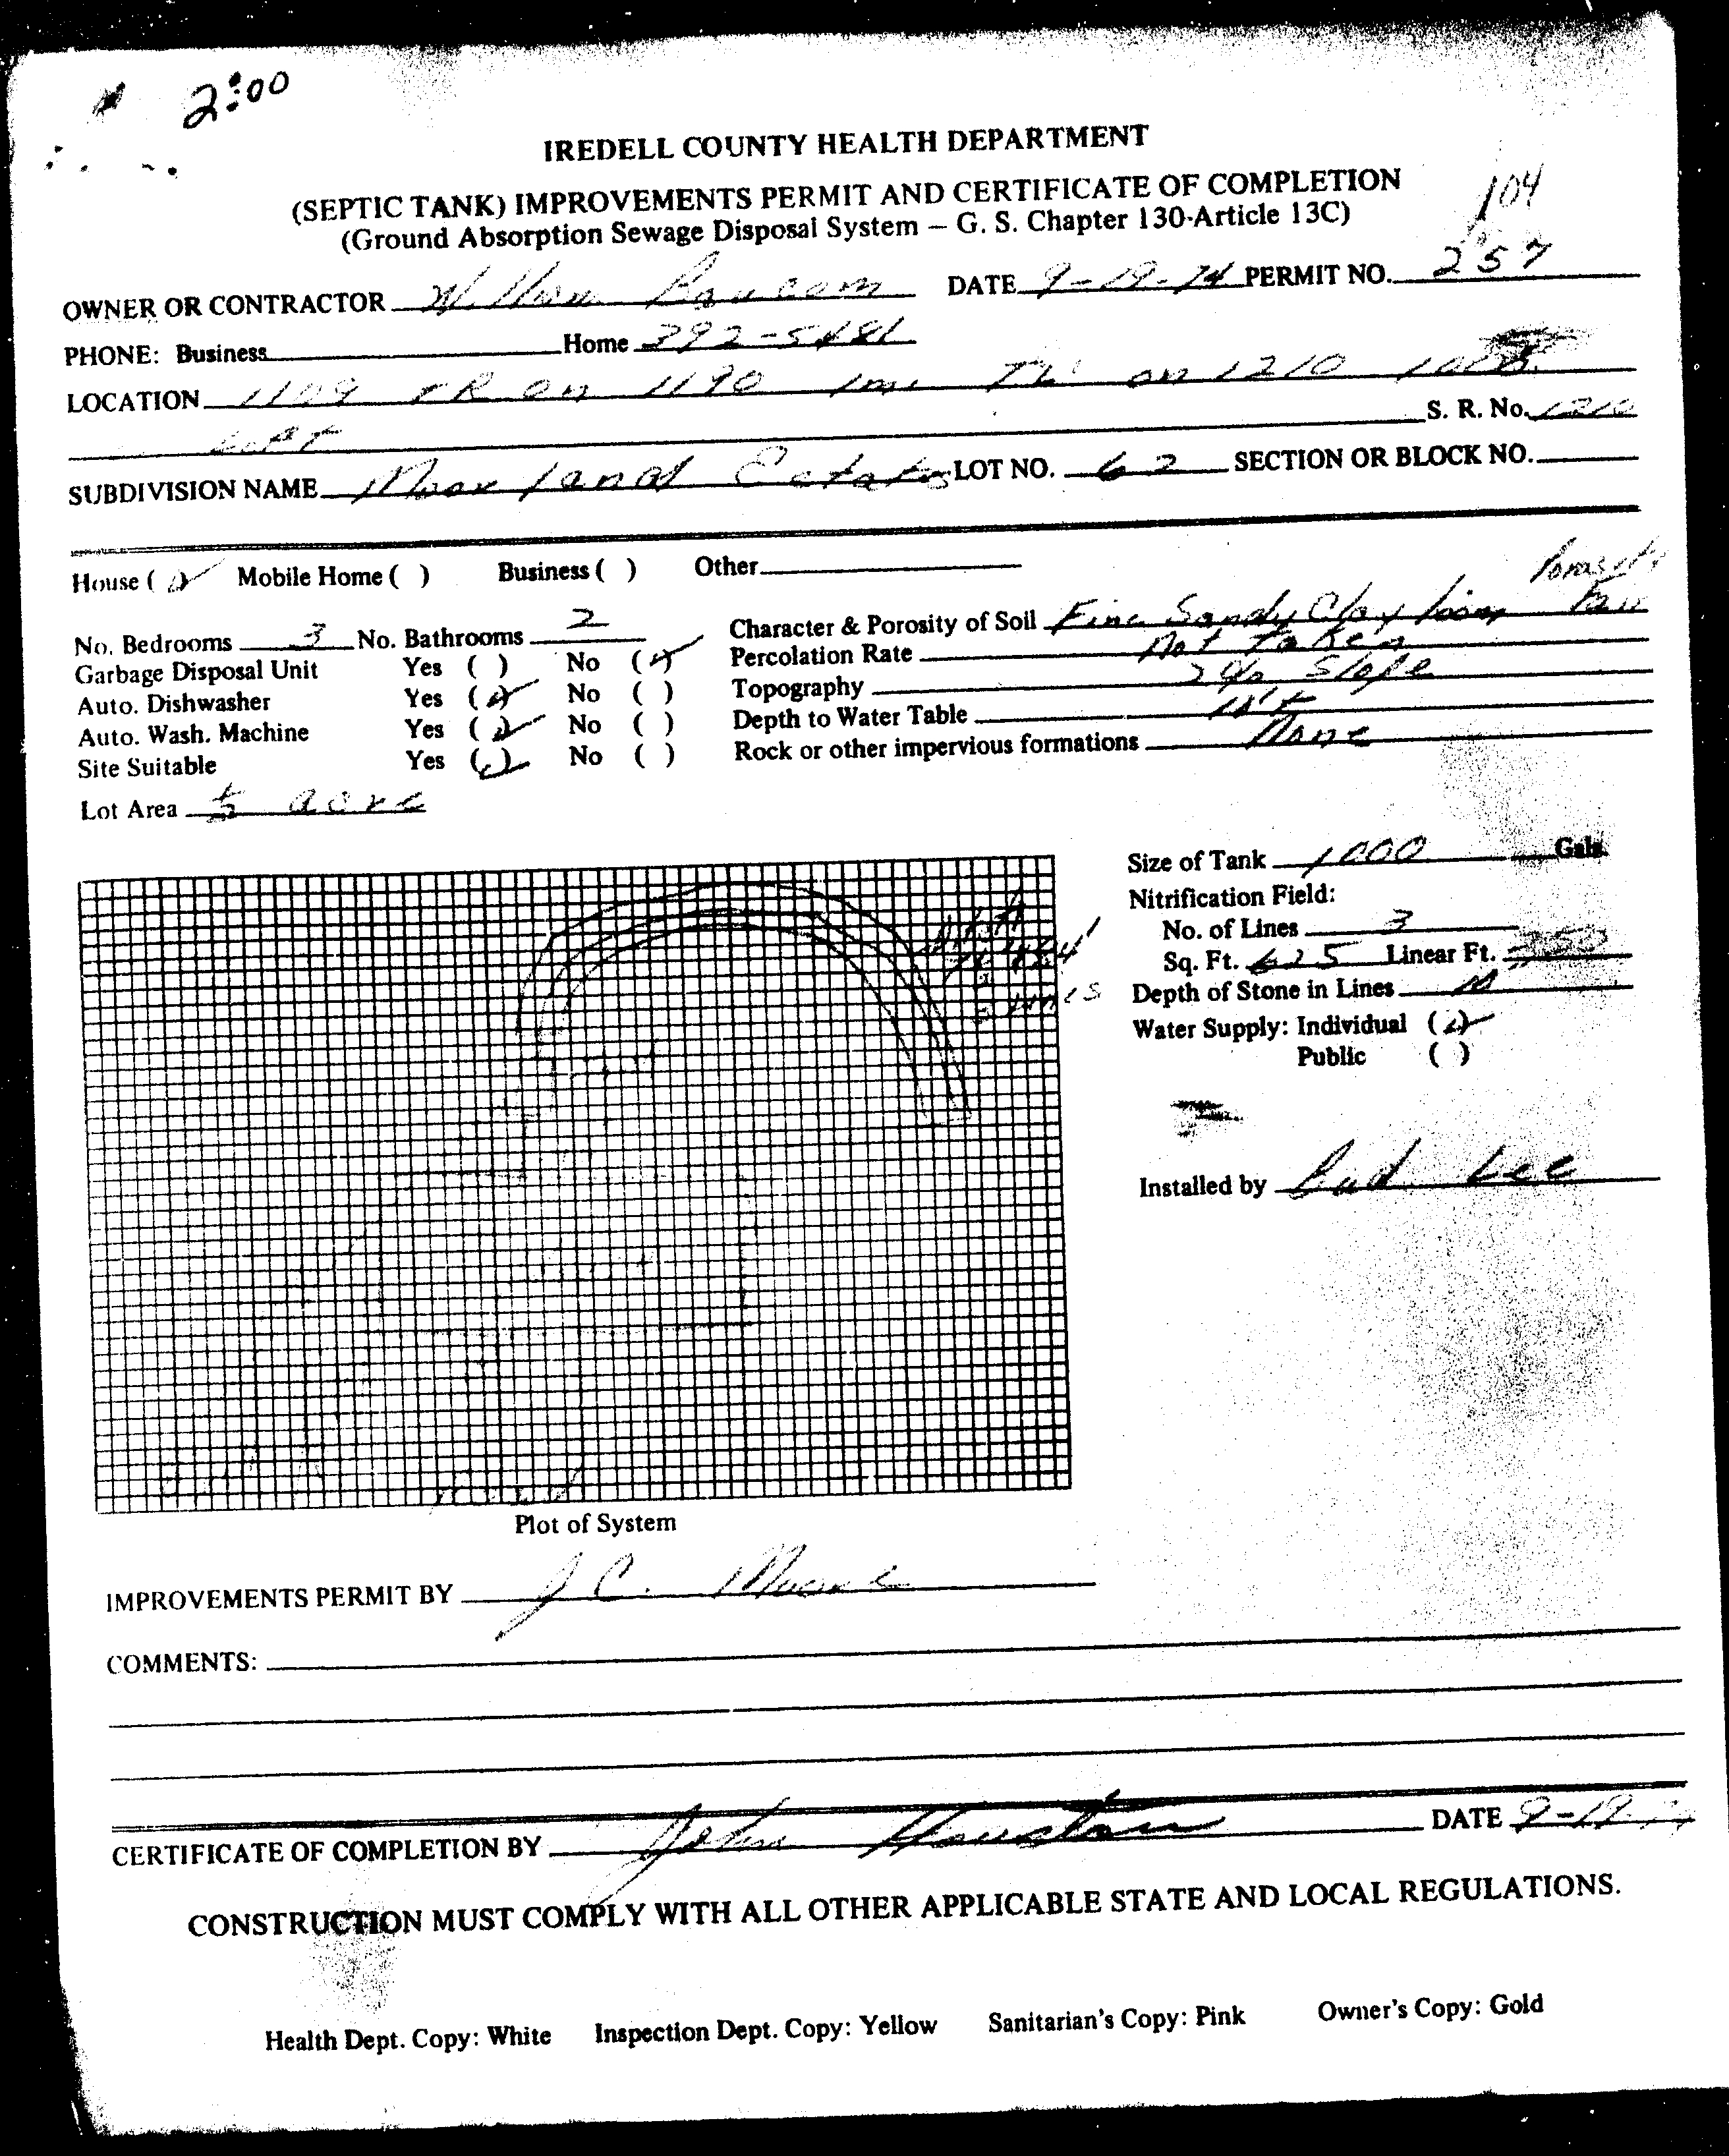 2:00
IREDELL COUNTY HEALTH DEPARTMENT
(SEPTIC TANK) IMPROVEMENTS PERMIT AND CERTIFICATE OF COMPLETION
104
(Ground Absorption Sewage Disposal System – G. S. Chapter 130-Article 13C)
OWNER OR CONTRACTOR William Baucom DATE 9-19-74 PERMIT NO. 257
PHONE: Business Home
LOCATION 1109 TR on 1190 on 1210
left S. R. No. 1210
SUBDIVISION NAME Moreland Estates LOT NO. 62 SECTION OR BLOCK NO.
House ( ) Mobile Home ( ) Business ( ) Other
Porosity
No. Bedrooms 3 No. Bathrooms 2 Character & Porosity of Soil Fine Sandy Clay loam Fair
Garbage Disposal Unit Yes ( ) No (✓) Percolation Rate Not Taken
Auto. Dishwasher Yes (✓) No ( ) Topography 2% Slope
Auto. Wash. Machine Yes (✓) No ( ) Depth to Water Table
Site Suitable Yes (✓) No ( ) Rock or other impervious formations None
Lot Area ½ acre
Size of Tank 1000 Gals.
Nitrification Field:
No. of Lines 3
Sq. Ft. 625 Linear Ft.
lines
Depth of Stone in Lines
Water Supply: Individual (✓)
Public ( )
Installed by Bud Lee
Plot of System
IMPROVEMENTS PERMIT BY J C. Moore
COMMENTS:
CERTIFICATE OF COMPLETION BY John Houston DATE 9-19-74
CONSTRUCTION MUST COMPLY WITH ALL OTHER APPLICABLE STATE AND LOCAL REGULATIONS.
Health Dept. Copy: White Inspection Dept. Copy: Yellow Sanitarian's Copy: Pink Owner's Copy: Gold